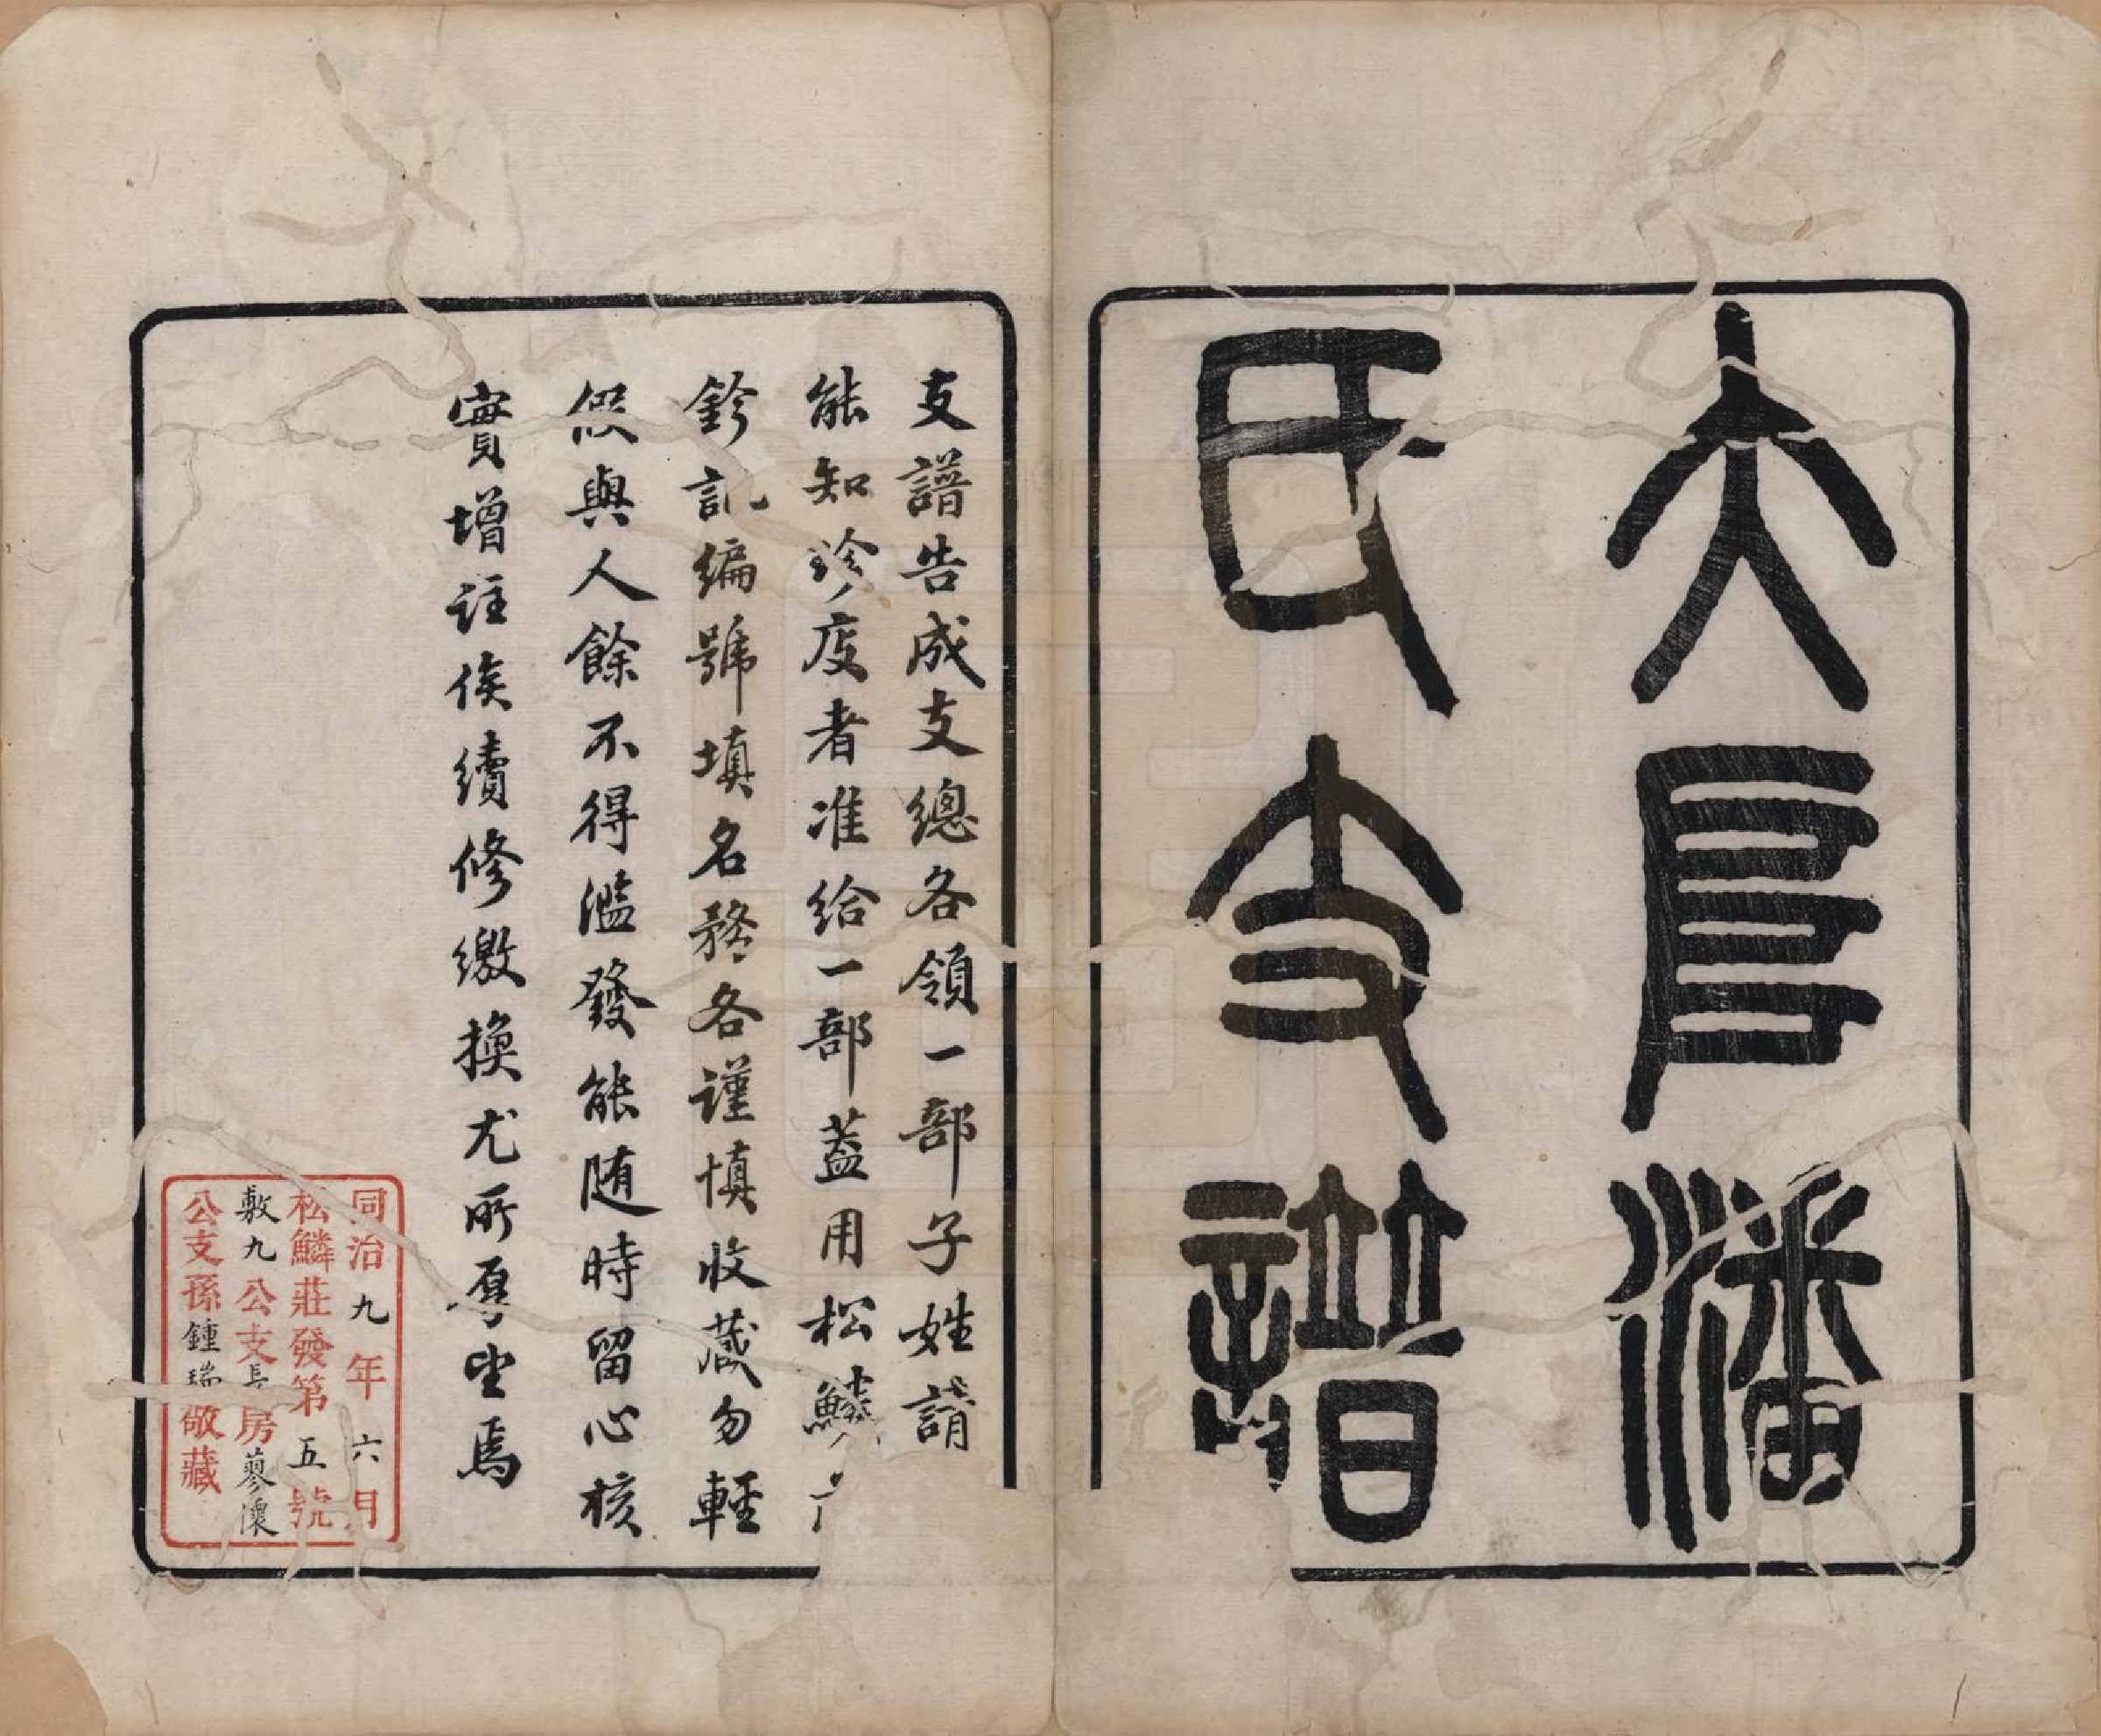 大阜潘
氏支譜
支譜告成支總各領一部子姓請
能知珍庋者准給一部蓋用松鱗
鈐記編號填名務各謹慎收藏勿輕
假與人餘不得濫發能随時留心核
實增註俟續修繳換尤所厚望焉
同治九年六月
松鱗莊發第五號
敷九公支長房蓼懷
公支孫鍾瑞敬藏